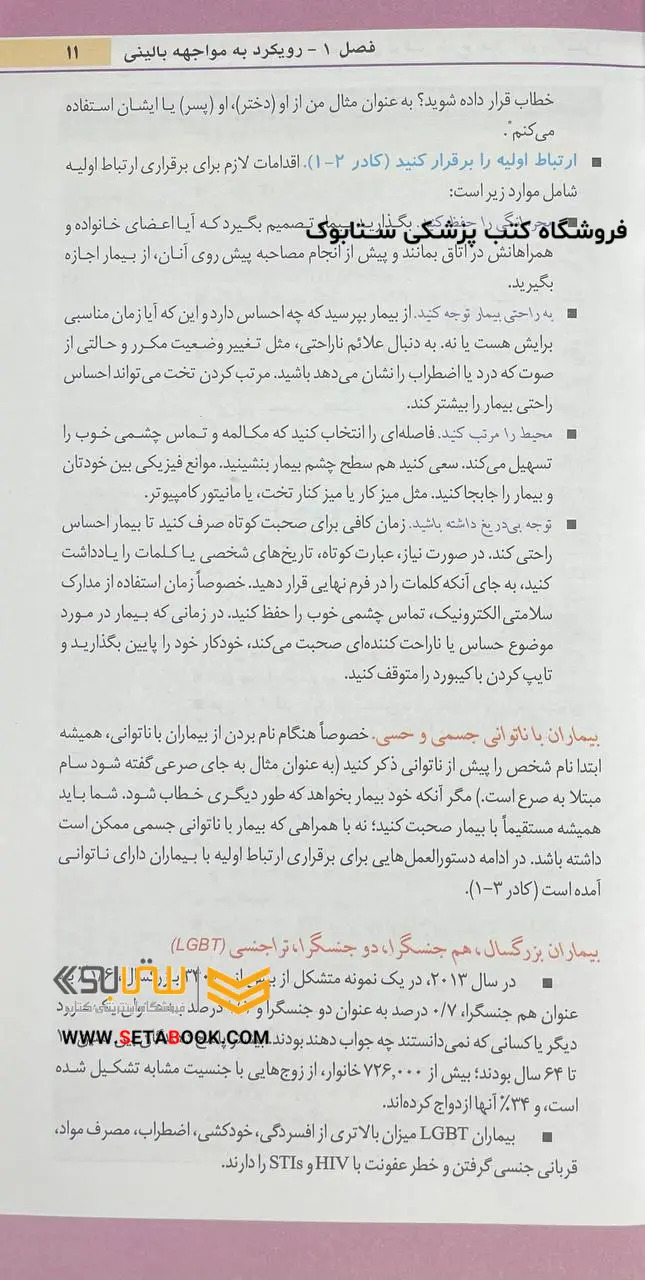 فصل ۱ - رویکرد به مواجهه بالینی ۱۱
خطاب قرار داده شوید؟ به عنوان مثال من از او (دختر)، او (پسر) یا ایشان استفاده
می‌کنم".
ارتباط اولیه را برقرار کنید (کادر ۲-۱). اقدامات لازم برای برقراری ارتباط اولیه
شامل موارد زیر است:
محرمانگی را حفظ کنید. بگذارید بیمار تصمیم بگیرد که آیا اعضای خانواده و
فروشگاه کتب پزشکی ستابوک
همراهانش در اتاق بمانند و پیش از انجام مصاحبه پیش روی آنان، از بیمار اجازه
بگیرید.
به راحتی بیمار توجه کنید. از بیمار بپرسید که چه احساس دارد و این که آیا زمان مناسبی
برایش هست یا نه. به دنبال علائم ناراحتی، مثل تغییر وضعیت مکرر و حالتی از
صوت که درد یا اضطراب را نشان می‌دهد باشید. مرتب کردن تخت می‌تواند احساس
راحتی بیمار را بیشتر کند.
محیط را مرتب کنید. فاصله‌ای را انتخاب کنید که مکالمه و تماس چشمی خوب را
تسهیل می‌کند. سعی کنید هم سطح چشم بیمار بنشینید. موانع فیزیکی بین خودتان
و بیمار را جابجا کنید. مثل میز کار یا میز کنار تخت، یا مانیتور کامپیوتر.
توجه بی‌دریغ داشته باشید. زمان کافی برای صحبت کوتاه صرف کنید تا بیمار احساس
راحتی کند. در صورت نیاز، عبارت کوتاه، تاریخ‌های شخصی یا کلمات را یادداشت
کنید، به جای آنکه کلمات را در فرم نهایی قرار دهید. خصوصاً زمان استفاده از مدارک
سلامتی الکترونیک، تماس چشمی خوب را حفظ کنید. در زمانی که بیمار در مورد
موضوع حساس یا ناراحت کننده‌ای صحبت می‌کند، خودکار خود را پایین بگذارید و
تایپ کردن با کیبورد را متوقف کنید.
بیماران با ناتوانی جسمی و حسی. خصوصاً هنگام نام بردن از بیماران با ناتوانی، همیشه
ابتدا نام شخص را پیش از ناتوانی ذکر کنید (به عنوان مثال به جای صرعی گفته شود سام
مبتلا به صرع است.) مگر آنکه خود بیمار بخواهد که طور دیگری خطاب شود. شما باید
همیشه مستقیماً با بیمار صحبت کنید؛ نه با همراهی که بیمار با ناتوانی جسمی ممکن است
داشته باشد. در ادامه دستورالعمل‌هایی برای برقراری ارتباط اولیه با بیماران دارای ناتوانی
آمده است (کادر ۳-۱).
بیماران بزرگسال، هم جنسگرا، دو جنسگرا، تراجنسی (LGBT)
در سال ۲۰۱۳، در یک نمونه متشکل از بیش از بزرگسال،
ستابوک
فروشگاه اینترنتی کتاب
عنوان هم جنسگرا، ۰/۷ درصد به عنوان دو جنسگرا و درصد به عنوان یک مورد
WWW.SETABOOK.COM
دیگر یا کسانی که نمی‌دانستند چه جواب دهند بودند.
تا ۶۴ سال بودند؛ بیش از ۷۲۶,۰۰۰ خانوار، از زوج‌هایی با جنسیت مشابه تشکیل شده
است، و ۳۴٪ آنها ازدواج کرده‌اند.
بیماران LGBT میزان بالاتری از افسردگی، خودکشی، اضطراب، مصرف مواد،
قربانی جنسی گرفتن و خطر عفونت با HIV و STIs را دارند.